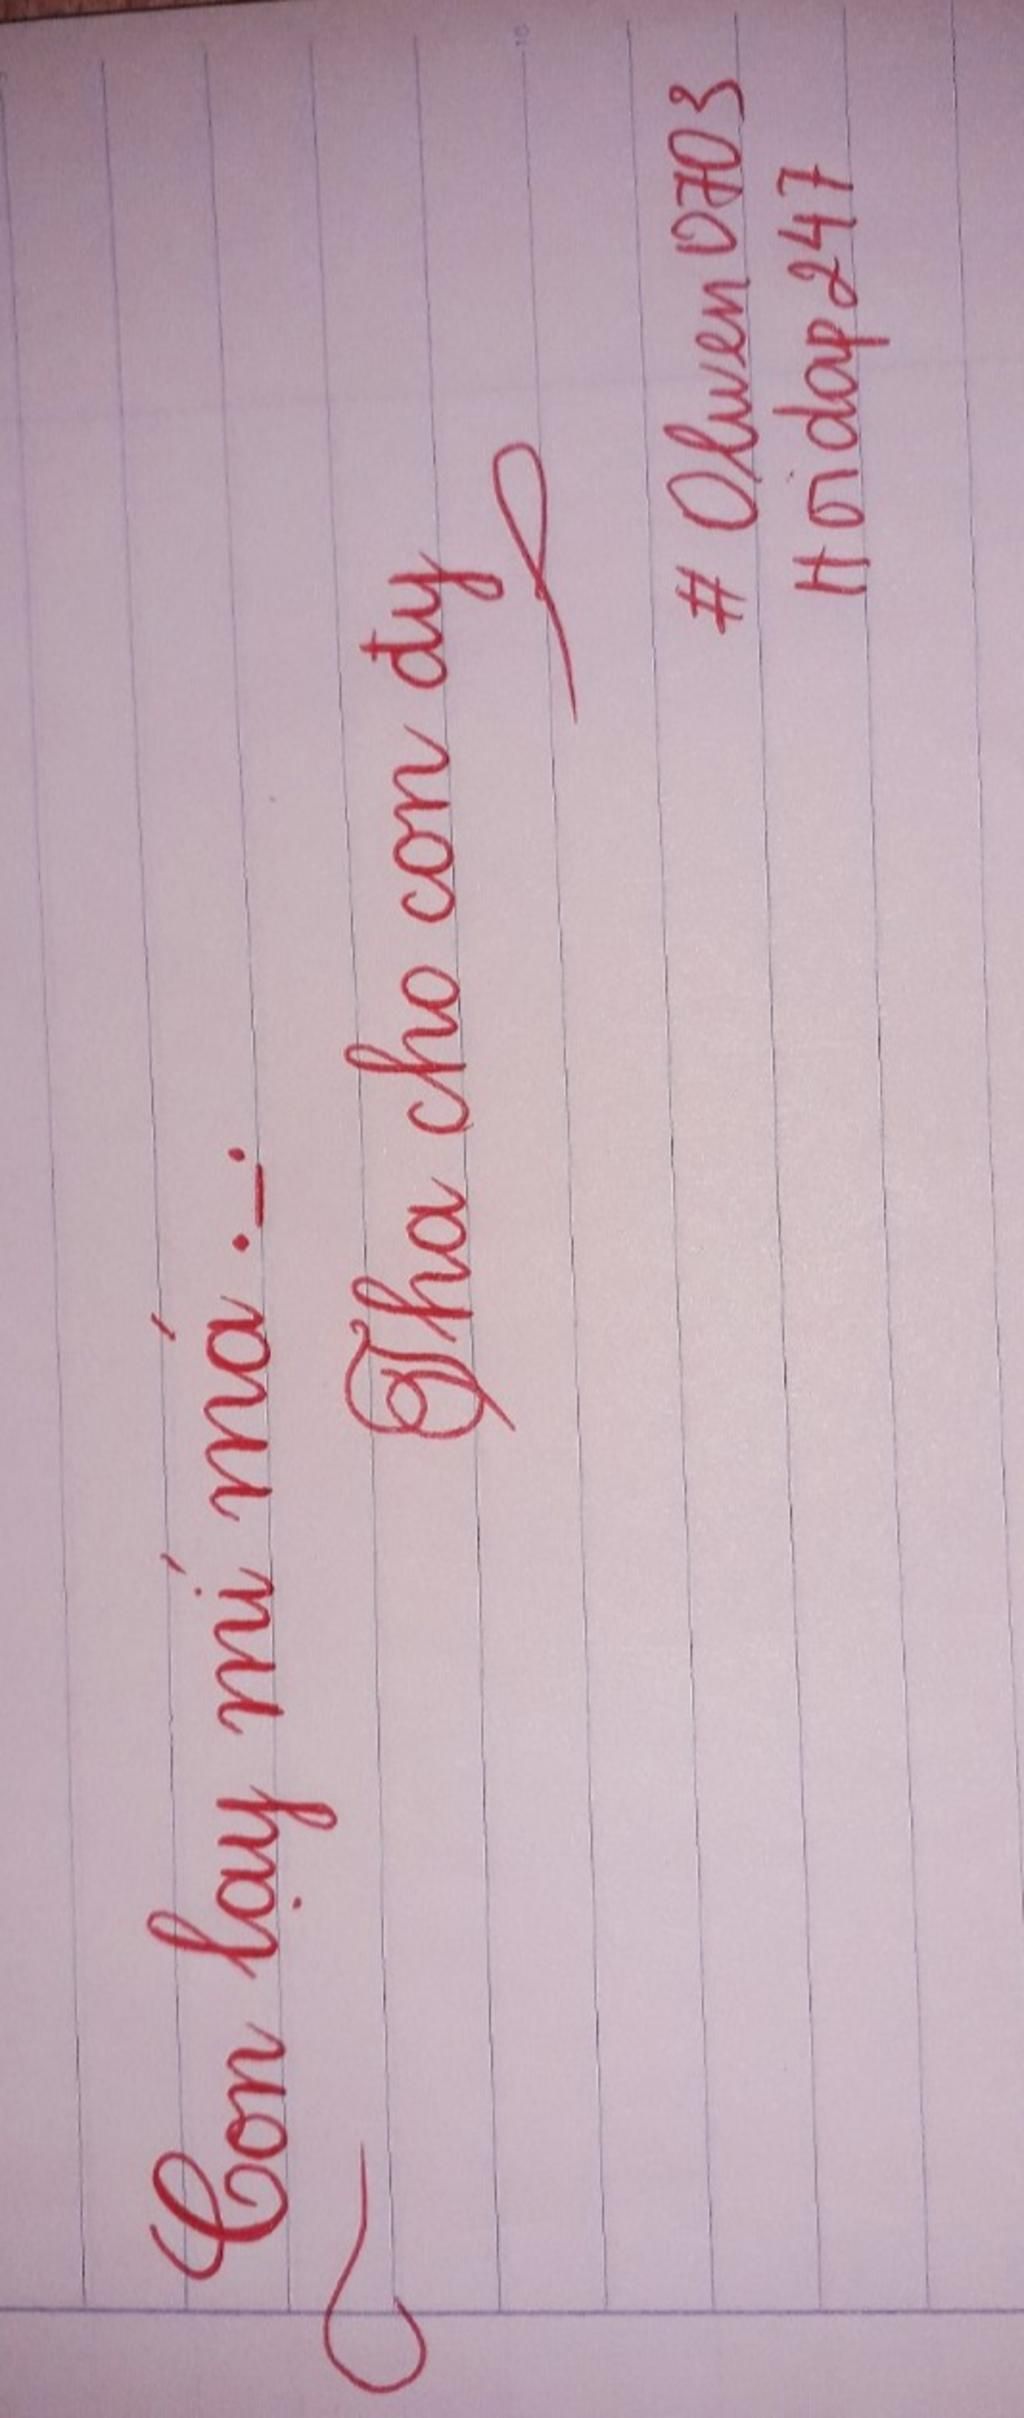 Con lạy mí má .-.
Tha cho con đy
# Olwen0703
Hoidap247